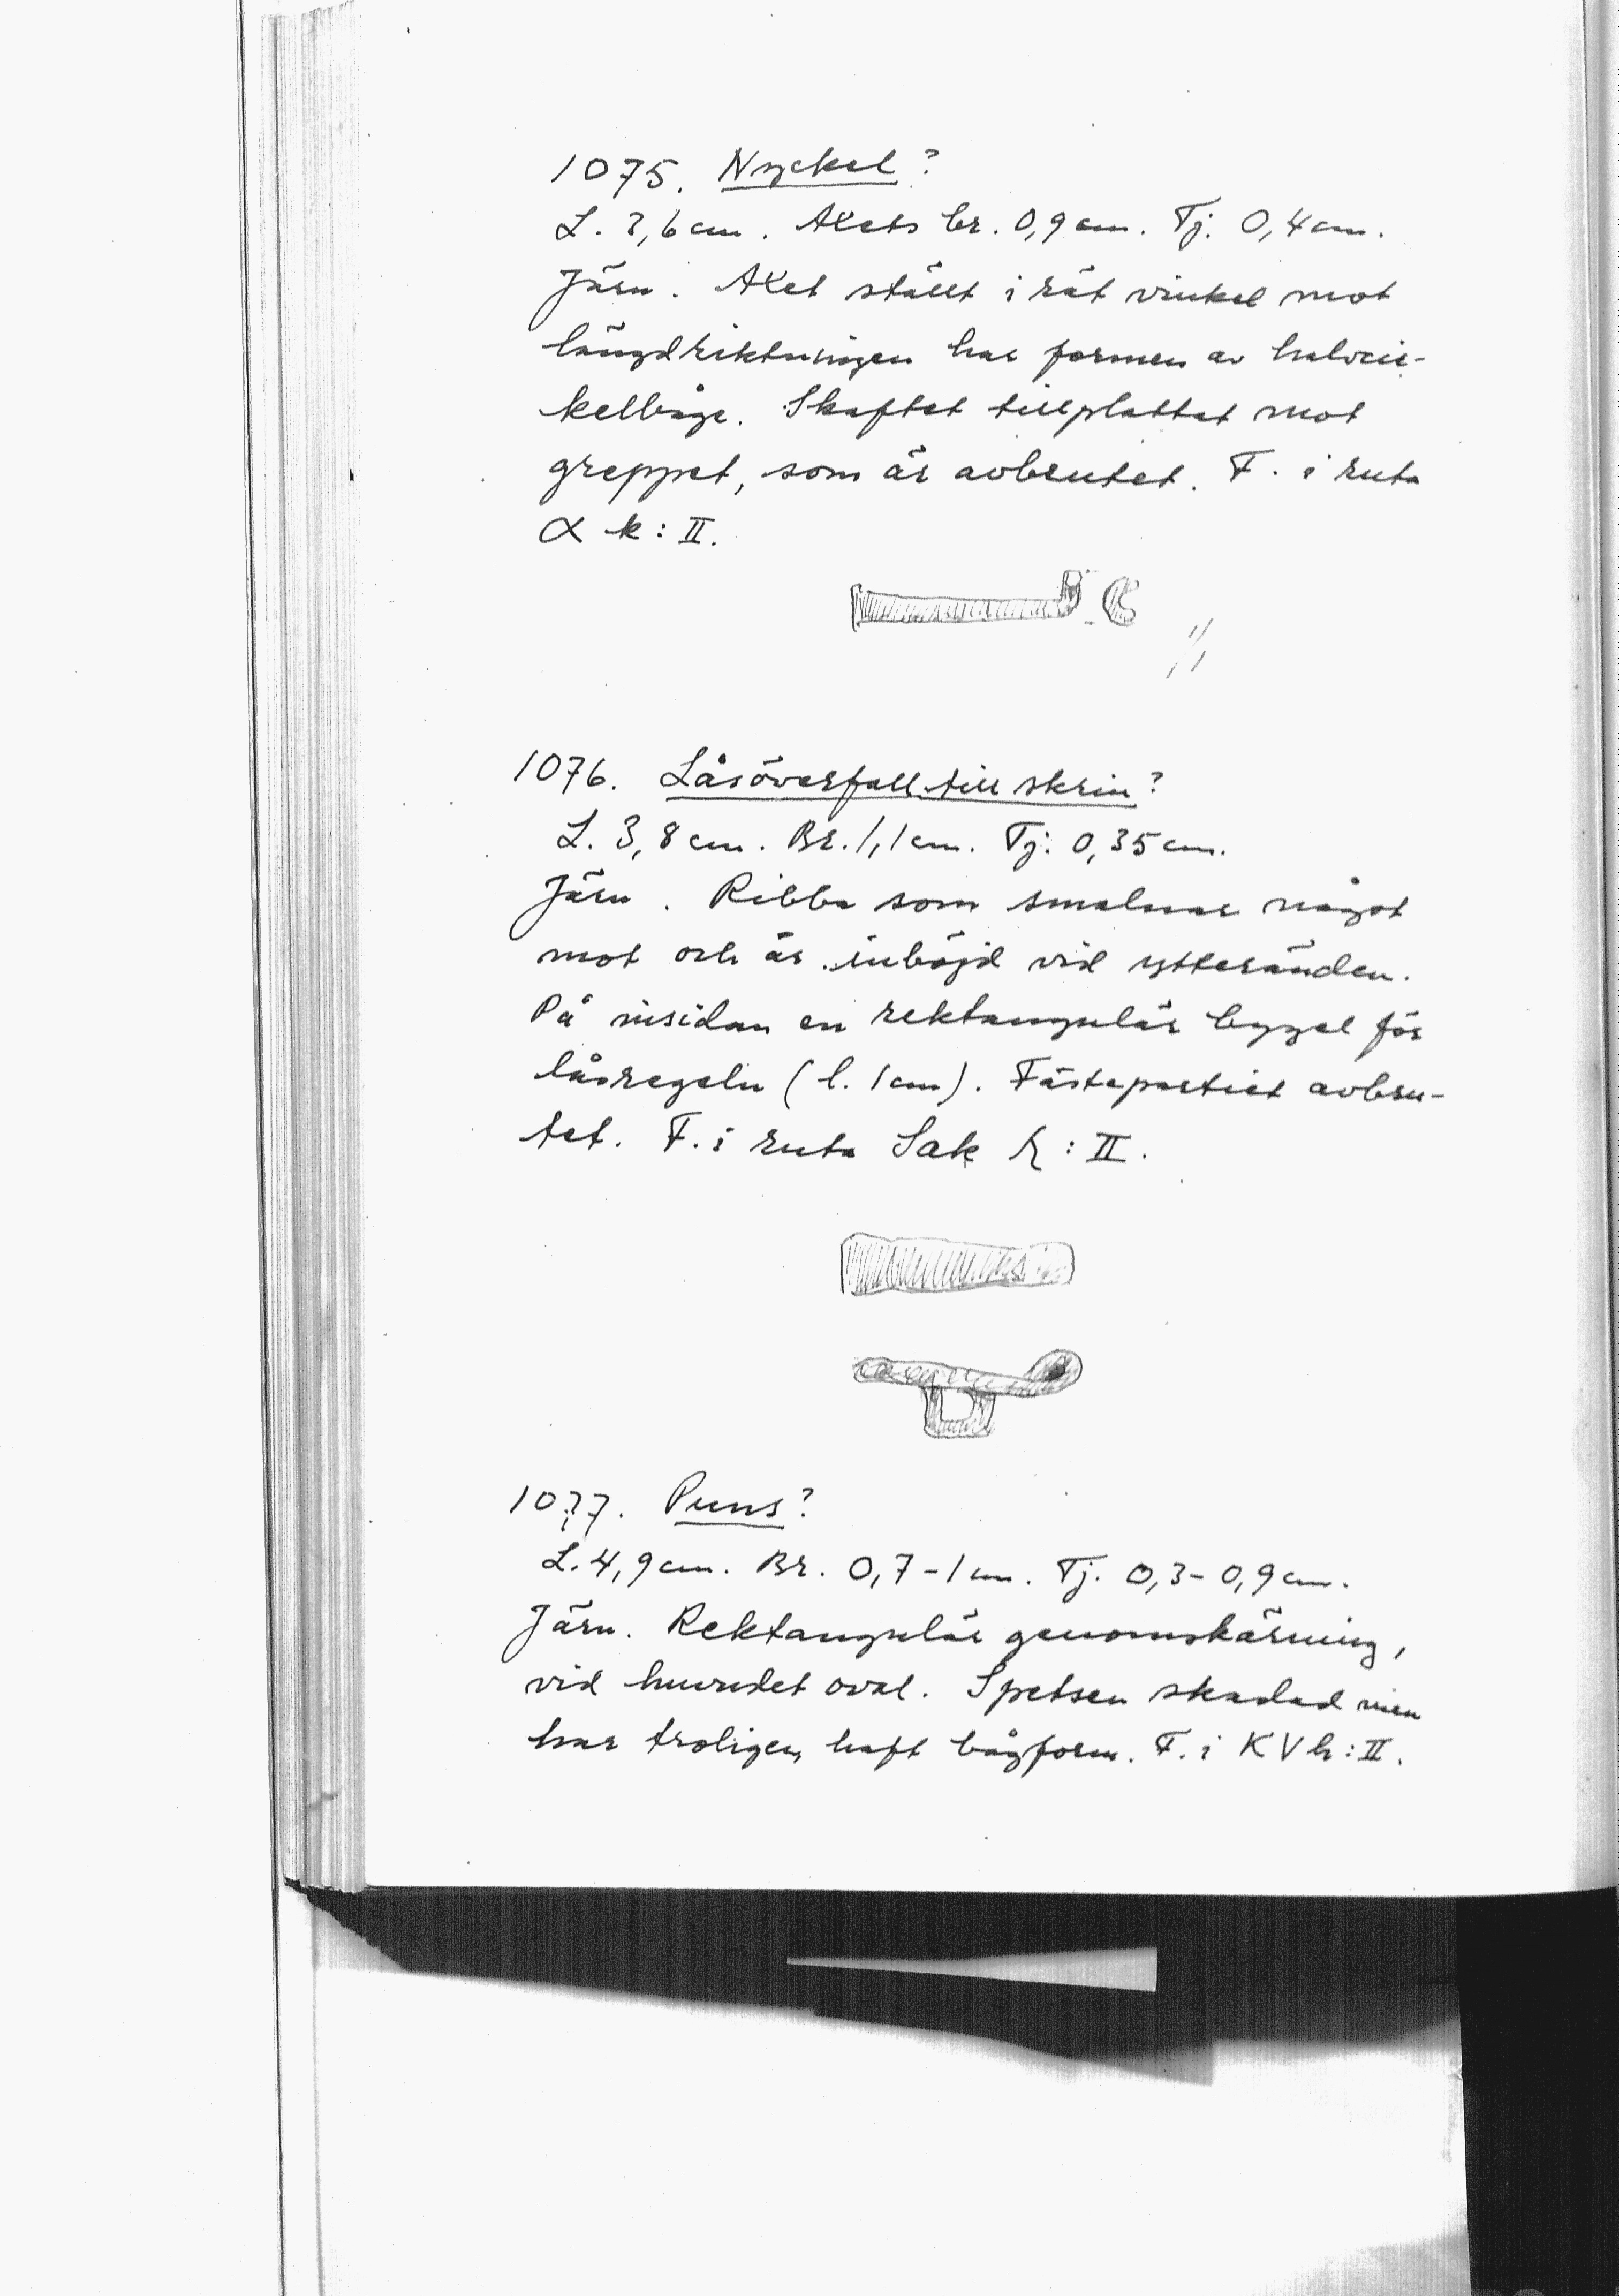 1075. Nyckel?
L. 3,6 cm. Axets br. 0,9 cm. Tj. 0,4 cm.
Järn. Axet ställt i rät vinkel mot
längdriktningen har formen av halvcir-
kelbåge. Skaftet tillplattat mot
greppet, som är avbrutet. F. i ruta
α k: II.
1076. Låsöverfall till skrin?
L. 3,8 cm. Br. 1,1 cm. Tj. 0,35 cm.
Järn. Ribba som smalnar något
mot och är inböjd vid ytteränden.
På insidan en rektangulär bygel för
låsregeln (l. 1 cm). Fästepartiet avbru-
tet. F. i ruta Sak : II.
1077. Puns?
L. 4,9 cm. Br. 0,7-1 cm. Tj. 0,3-0,9 cm.
Järn. Rektangulär genomskärning,
vid huvudet oval. Spetsen skadad men
har troligen haft bågform. F. i K V h: II.